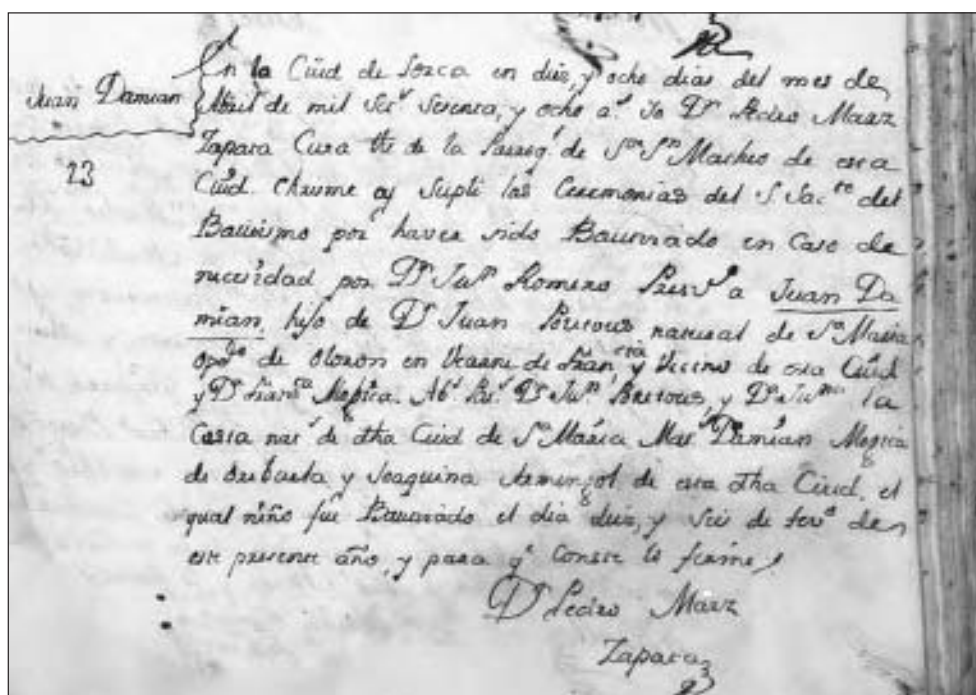 En la Ciud de Lorca en diez, y ocho dias del mes de
Juan Damian
Abril de mil Setº Setenta, y ocho aˢ Yo Dⁿ Pedro Marz
Zapata Cura Thᵉ de la Parroqˡ de Sᵒʳ Sⁿ Matheo de esta
23
Ciud. Chrisme y Supli las Ceremonias del S. Sacᵗᵒ del
Bautismo por haver sido Bautizado en Caso de
necesidad por Dⁿ Juⁿ Romero Presvº a Juan Da
mian, hijo de Dⁿ Juan Bortous natural de Sᵗᵃ Maria
Opᵈᵒ de Oloron en Vearne de Franᶜⁱᵃ y Vecino de esta Ciud
y Dᵃ Franᶜᵃ Mogica. Abˢ Patˢ Dⁿ Juⁿ Bortous, y Dᵃ Juⁿᵃ la
Costa natˢ de dha Ciud de Sᵗᵃ Maria Matˢ Damian Mogica
de Buibarta y Joaquina Armingol de esta dha Ciud. el
qual niño fue Bautizado el dia diez, y seis de febº de
este presente año, y para qᵉ Conste lo firmé
Dⁿ Pedro Marz
Zapata